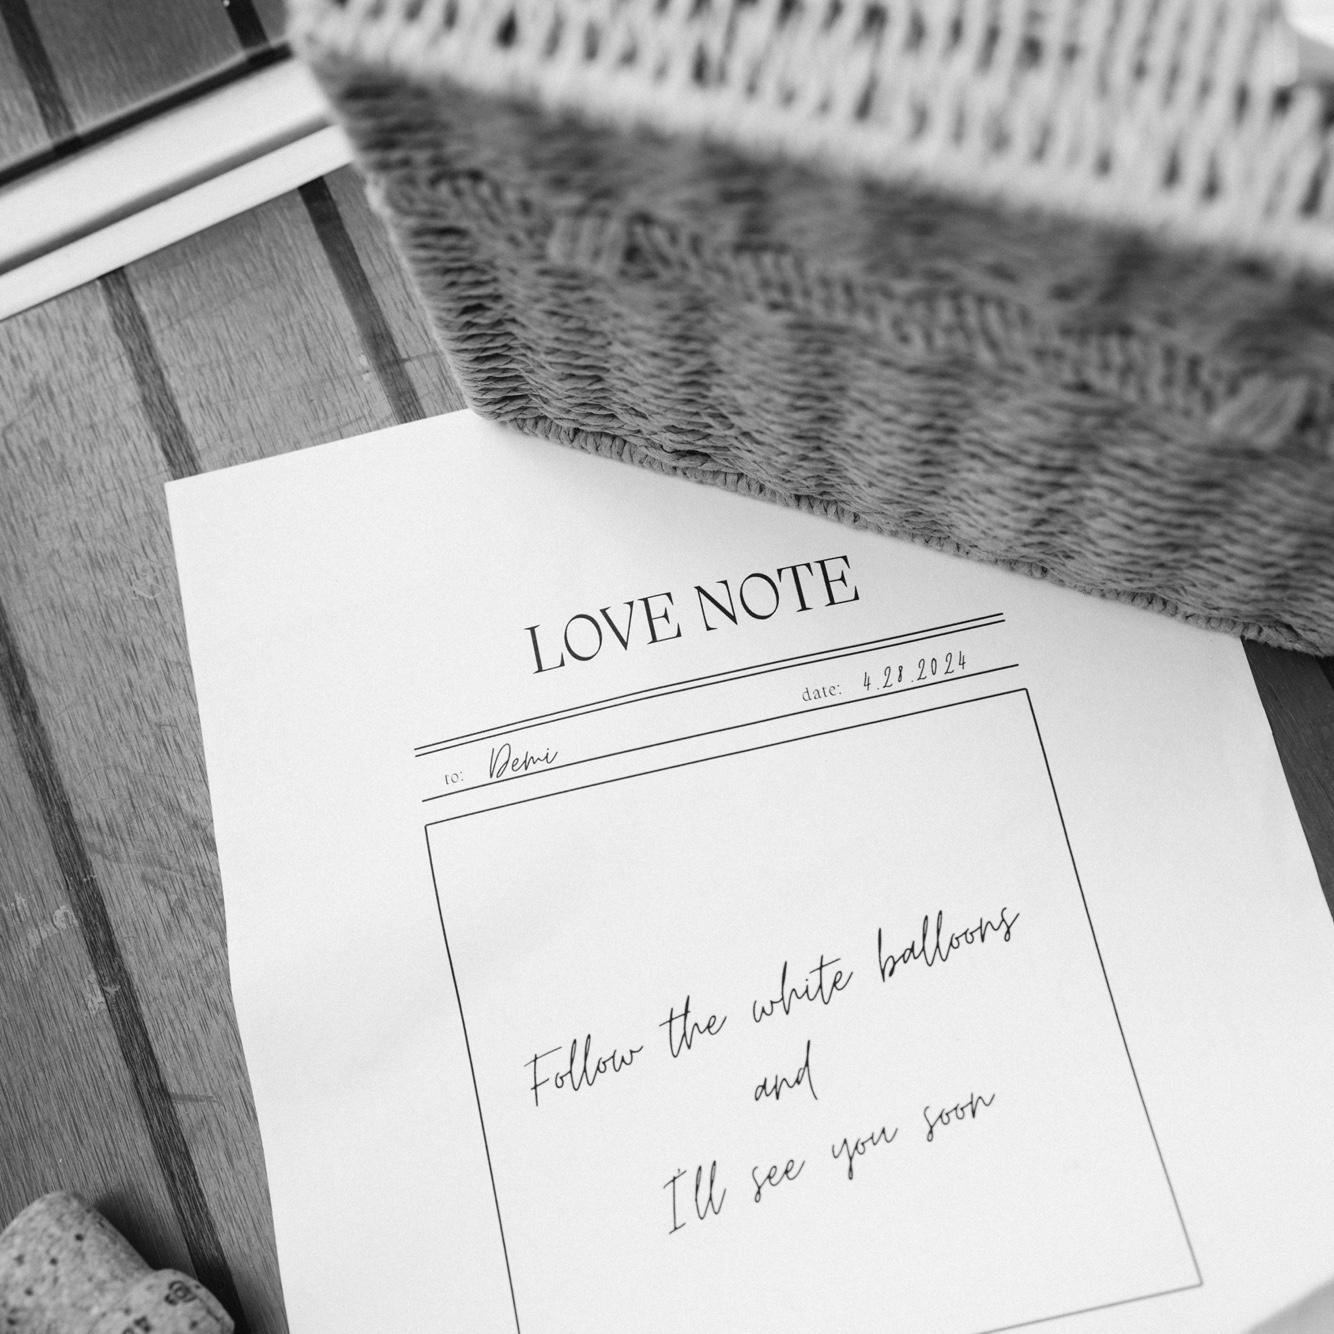 LOVE NOTE
date: 4.28.2024
to: Demi
Follow the white balloons
and
I'll see you soon